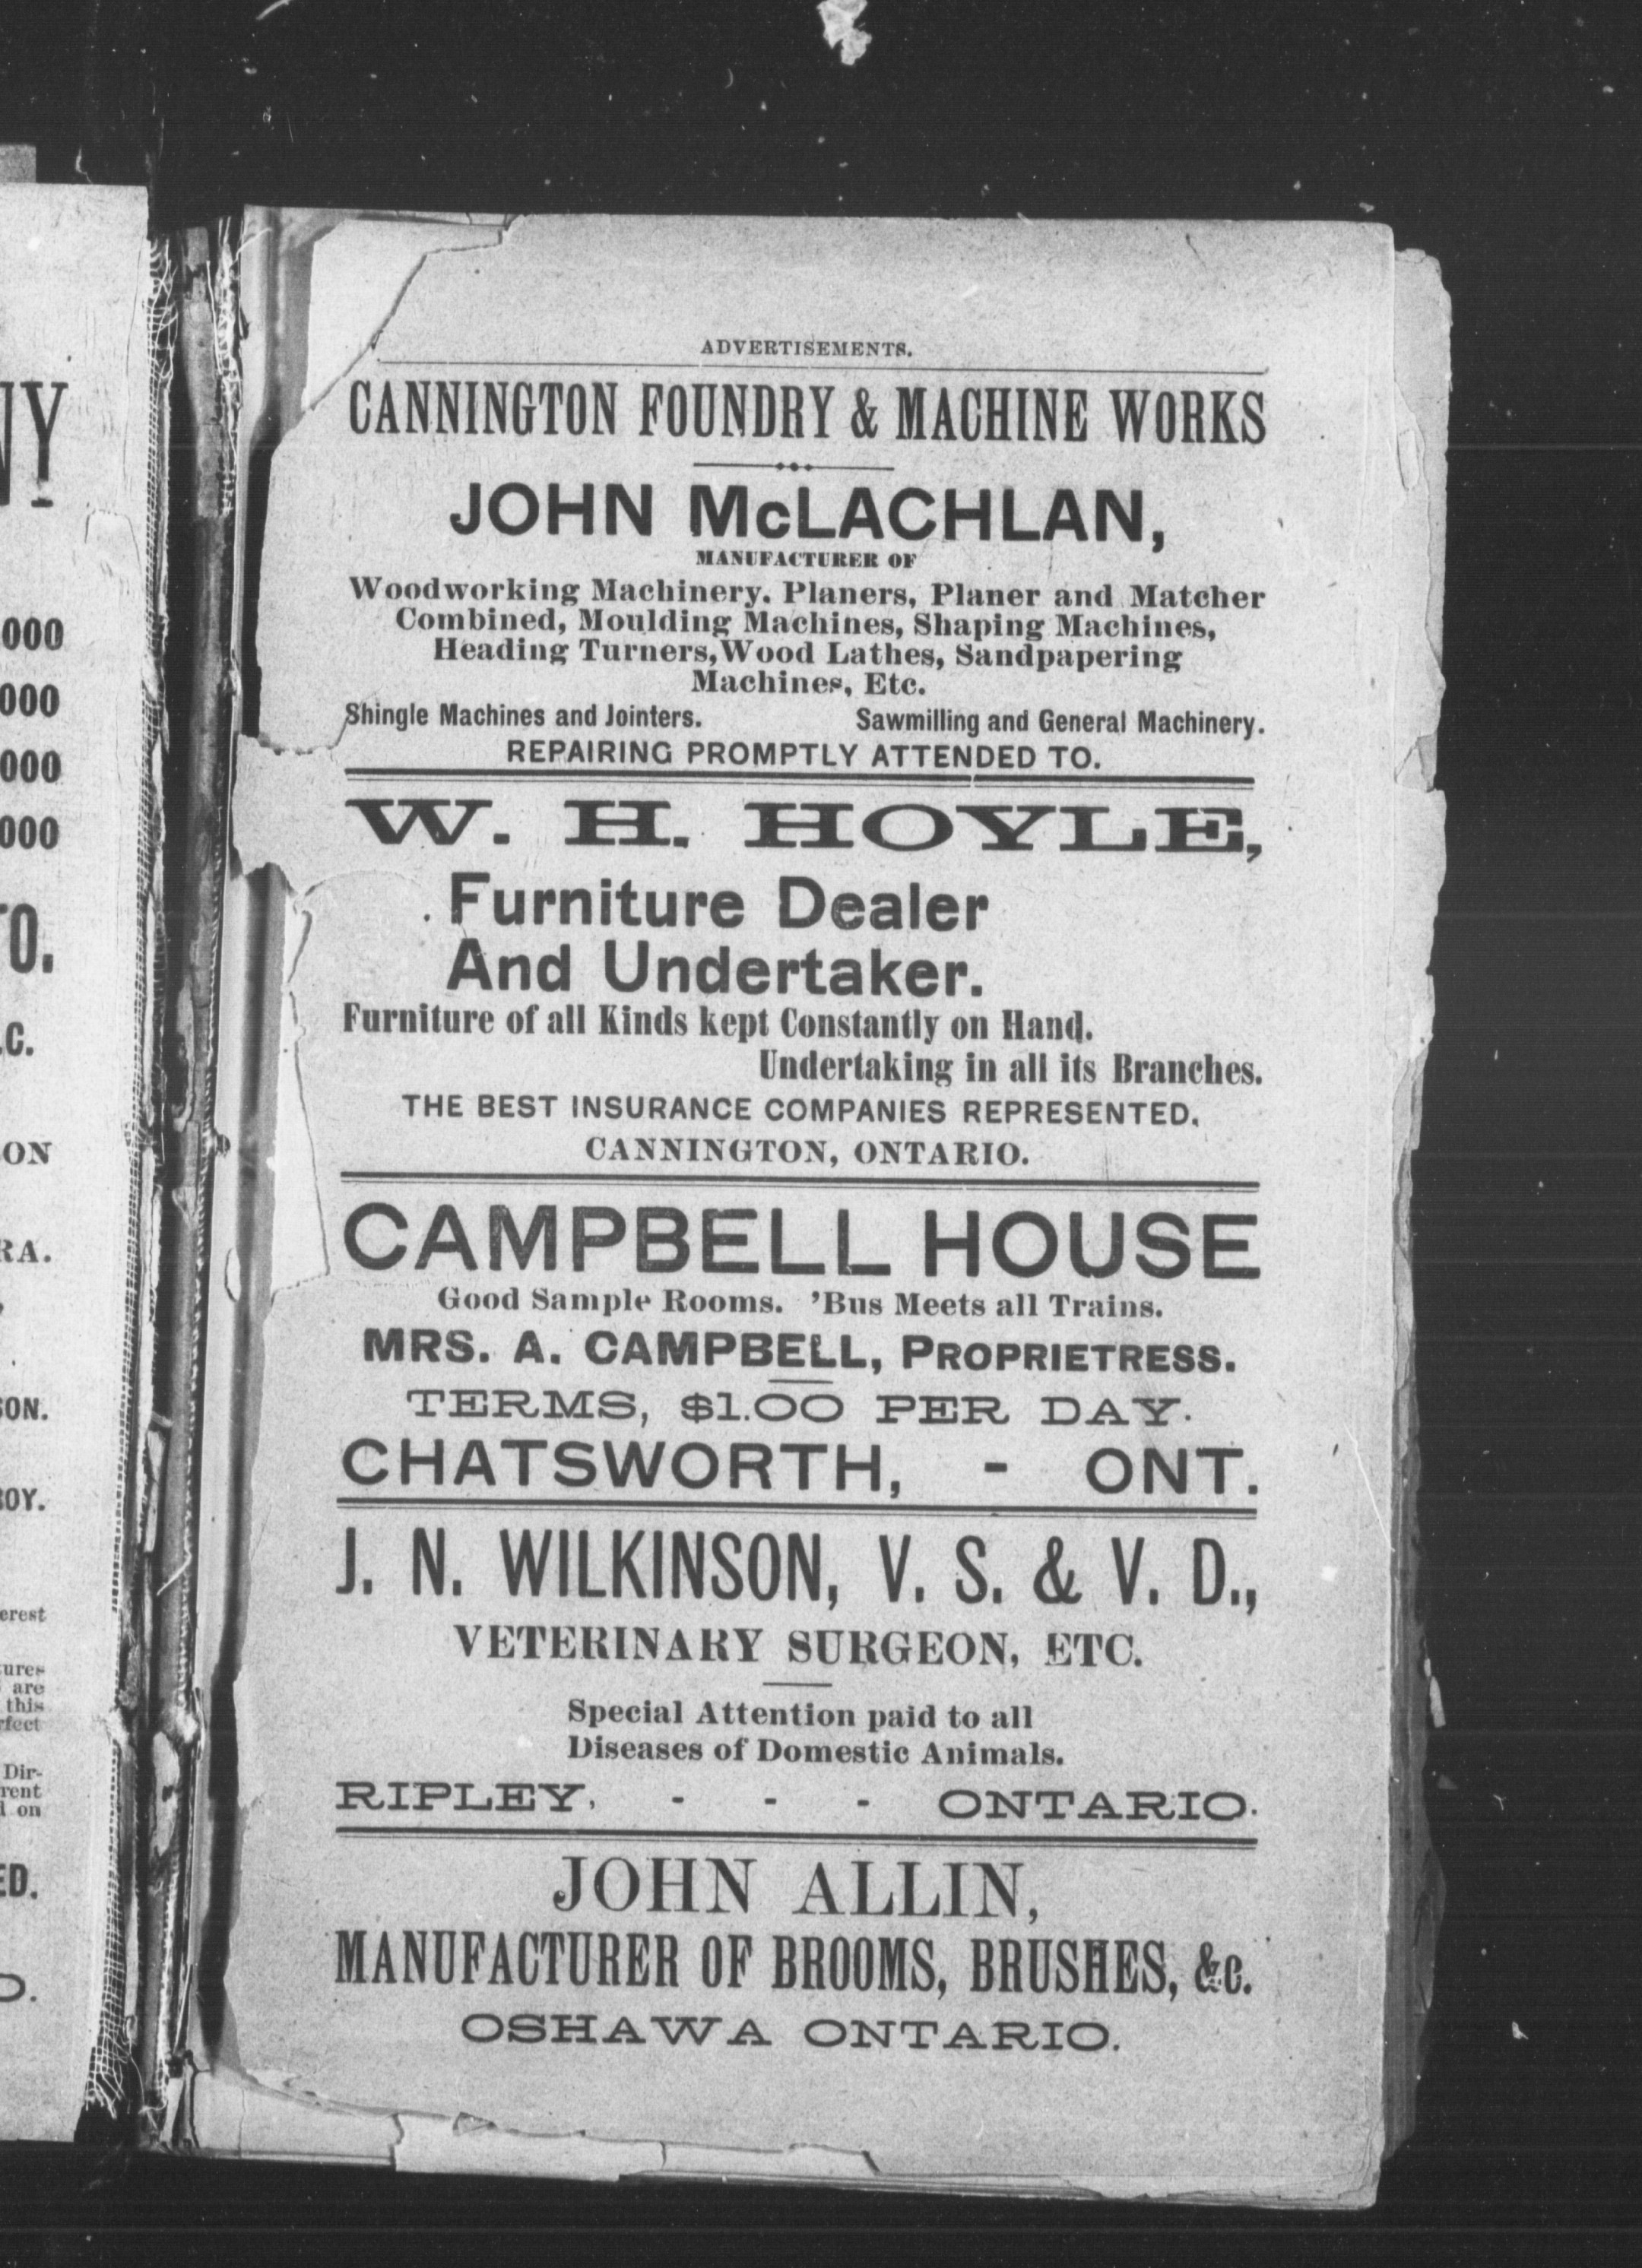 NY
000
000
000
000
TO.
.C.
ON
RA.
SON.
ROY.
erest
tures
are
this
rfect
Dir-
rent
on
ED.
D.
ADVERTISEMENTS.
CANNINGTON FOUNDRY & MACHINE WORKS
JOHN McLACHLAN,
MANUFACTURER OF
Woodworking Machinery. Planers, Planer and Matcher
Combined, Moulding Machines, Shaping Machines,
Heading Turners, Wood Lathes, Sandpapering
Machines, Etc.
Shingle Machines and Jointers. Sawmilling and General Machinery.
REPAIRING PROMPTLY ATTENDED TO.
W. H. HOYLE,
Furniture Dealer
And Undertaker.
Furniture of all Kinds kept Constantly on Hand.
Undertaking in all its Branches.
THE BEST INSURANCE COMPANIES REPRESENTED.
CANNINGTON, ONTARIO.
CAMPBELL HOUSE
Good Sample Rooms. 'Bus Meets all Trains.
MRS. A. CAMPBELL, PROPRIETRESS.
TERMS, $1.00 PER DAY.
CHATSWORTH, - ONT.
J. N. WILKINSON, V. S. & V. D.,
VETERINARY SURGEON, ETC.
Special Attention paid to all
Diseases of Domestic Animals.
RIPLEY, - - - ONTARIO.
JOHN ALLIN,
MANUFACTURER OF BROOMS, BRUSHES, &c.
OSHAWA ONTARIO.